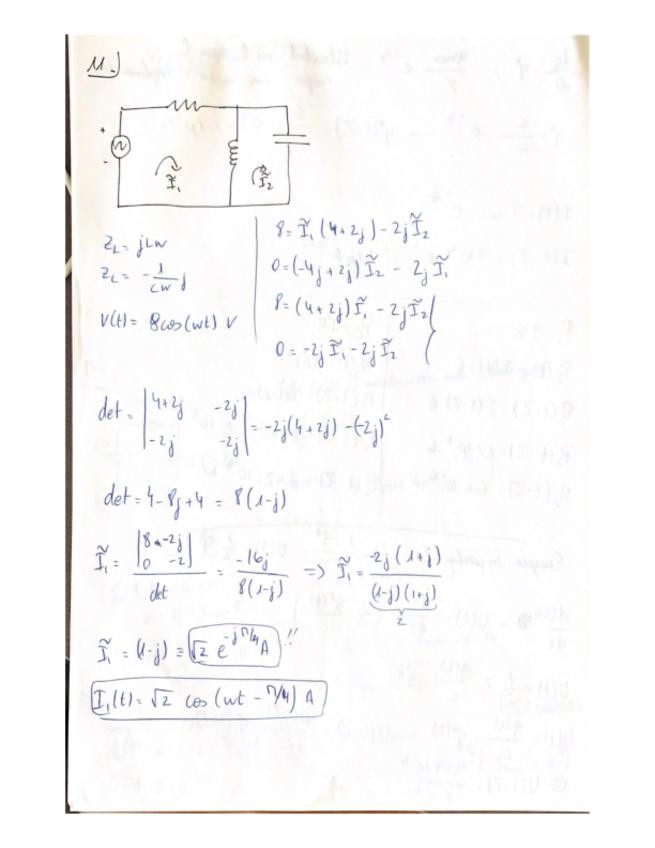 11.-)
+
-
Ĩ₁
Ĩ₂
Z_L = jLw
Z_C = -1/(Cw) j
V(t) = 8cos(wt) V
8 = Ĩ₁(4+2j) - 2jĨ₂
0 = (-4j+2j)Ĩ₂ - 2jĨ₁
8 = (4+2j)Ĩ₁ - 2jĨ₂
0 = -2jĨ₁ - 2jĨ₂
det = |4+2j -2j; -2j -2j| = -2j(4+2j) - (-2j)²
det = 4 - 8j + 4 = 8(1-j)
Ĩ₁ = |8 -2j; 0 -2j| / det = -16j / 8(1-j) => Ĩ₁ = -2j(1+j) / (1-j)(1+j)
2
Ĩ₁ = (1-j) = √2 e^(-jπ/4) A !!
I₁(t) = √2 cos(wt - π/4) A